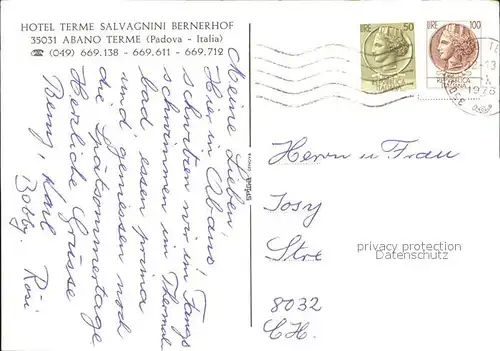 HOTEL TERME SALVAGNINI BERNERHOF
35031 ABANO TERME (Padova - Italia)
☎ (049) 669.138 - 669.611 - 669.712
Meine Lieben!
Hier in Abano
schwitzen wir im Fango
schwimmen im Thermal
bad, essen prima
und geniessen noch
die Spätsommertage
Herzliche Grüsse
Remy, Karl
Bobby. Rösi
LIRE 50
LIRE 100
1978
Herrn u Frau
Josy
Str
8032
CH.
privacy protection
Datenschutz